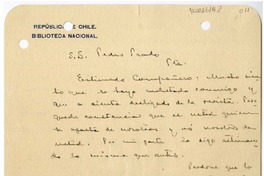 REPÚBLICA DE CHILE.
BIBLIOTECA NACIONAL.
S. D. Pedro Prado
Pte.
Estimado Compañero: Mucho sien-
to que lo haya molestado conmigo y
que se sienta desligado de la revista.
que es usted quien
se aparta de nosotros y no nosotros de
usted. Por mi parte lo sigo estiman-
do lo mismo que antes.
Perdone que lo